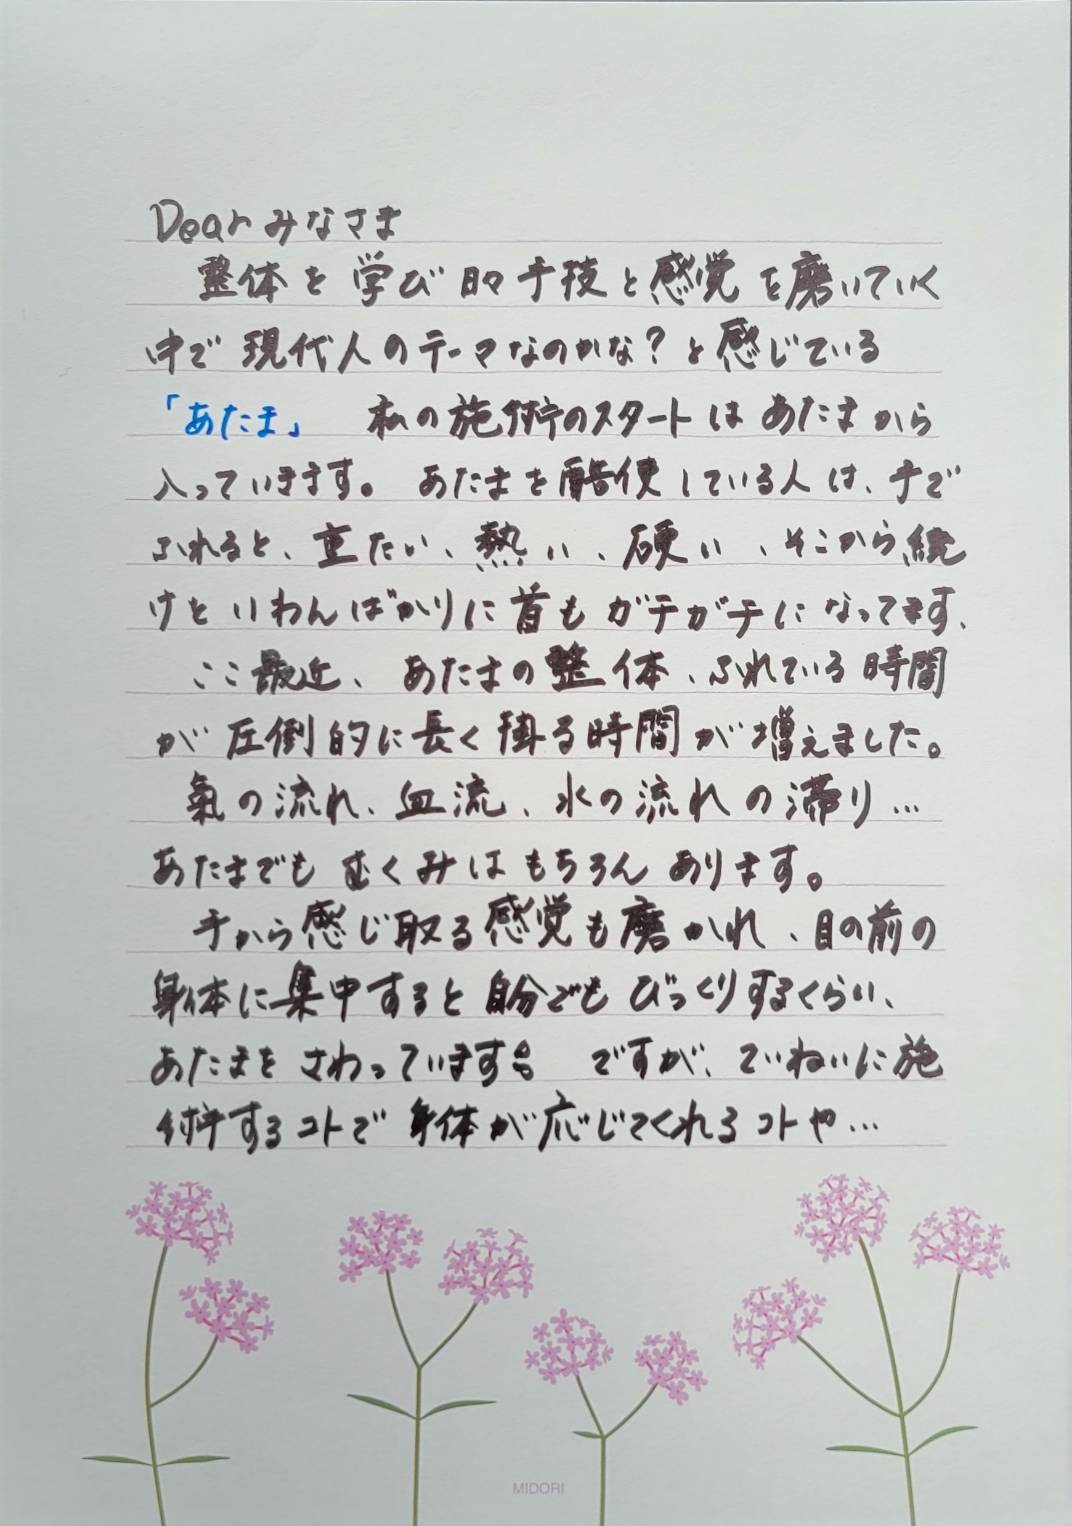 Dearみなさま
整体を学び日々手技と感覚を磨いていく
中で現代人のテーマなのかな?と感じている
「あたま」 私の施術のスタートはあたまから
入っていきます。あたまを酷使している人は、手で
ふれると、重たい、熱い、硬い、そこから続
けといわんばかりに首もガチガチになってます、
ここ最近、あたまの整体、ふれている時間
が圧倒的に長く掛る時間が増えました。
氣の流れ、血流、水の流れの滞り…
あたまでもむくみはもちろんあります。
手から感じ取る感覚も磨かれ、目の前の
身体に集中すると自分でもびっくりするくらい、
あたまをさわっています ですが、ていねいに施
術するコトで身体が応じてくれるコトや…
MIDORI